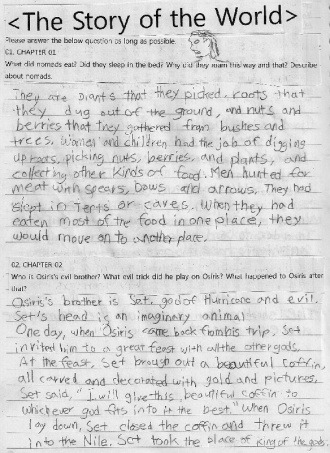 <The Story of the World>
Please answer the below question as long as possible.
01. CHAPTER 01
What did nomads eat? Did they sleep in the bed? Why did they roam this way and that? Describe
about nomads.
They are plants that they picked, roots that
they dug out of the ground, and nuts and
berries that they gathered from bushes and
trees. Women and children had the job of digging
up roots, picking nuts, berries, and plants, and
collecting other kinds of food. Men hunted for
meat with spears, bows and arrows. They had
slept in tents or caves. When they had
eaten most of the food in one place, they
would move on to another place.
02. CHAPTER 02
Who is Osiris's evil brother? What evil trick did he play on Osiris? What happened to Osiris after
that?
Osiris's brother is Set, god of Hurricane and evil.
Set's head is an imaginary animal
One day, when Osiris came back from his trip, Set
invited him to a great feast with all the other gods.
At the feast, Set brough out a beautiful coffin,
all carved and decorated with gold and pictures.
Set said, "I will give this beautiful coffin to
whichever god fits into it the best." When Osiris
lay down, Set closed the coffin and threw it
into the Nile. Set took the place of king of the gods.